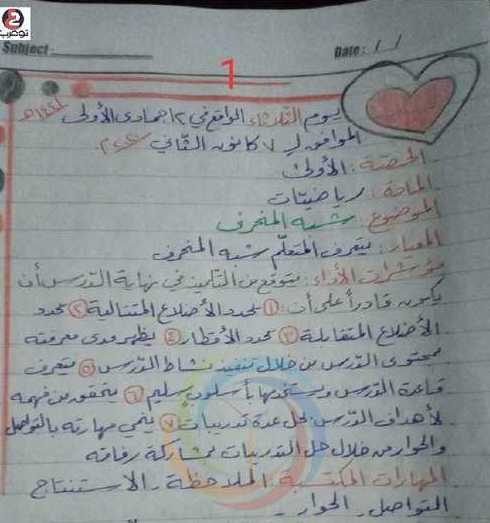 توعرب
Subject
Date: / /
1
يوم الثلاثاء الواقع في ١٢ جمادى الأولى ١٤٤١هـ
الموافق لـ ٧ كانون الثاني ٢٠٢٠
الحصة: الأولى
المادة: رياضيات
الموضوع: شبه المنحرف
المعيار: يتعرف المتعلّم شبه المنحرف
مؤشرات الأداء: يتوقع من التلميذ في نهاية الدرس أن
يكون قادراً على أن: ① يحدد الأضلاع المتتالية ② يحدد
الأضلاع المتقابلة ③ يحدد الأقطار ④ يظهر مدى معرفته
بمحتوى الدرس من خلال تنفيذ نشاط الدرس ⑤ يتعرف
قاعدة الدرس ويستخدمها بأسلوب سليم ⑥ يتحقق من فهمه
لأهداف الدرس بحل عدة تدريبات ⑦ ينمي مهارته بالتواصل
والحوار من خلال حل التدريبات بمشاركة رفاقه
المهارات المكتسبة: الملاحظة - الاستنتاج
التواصل - الحوار -